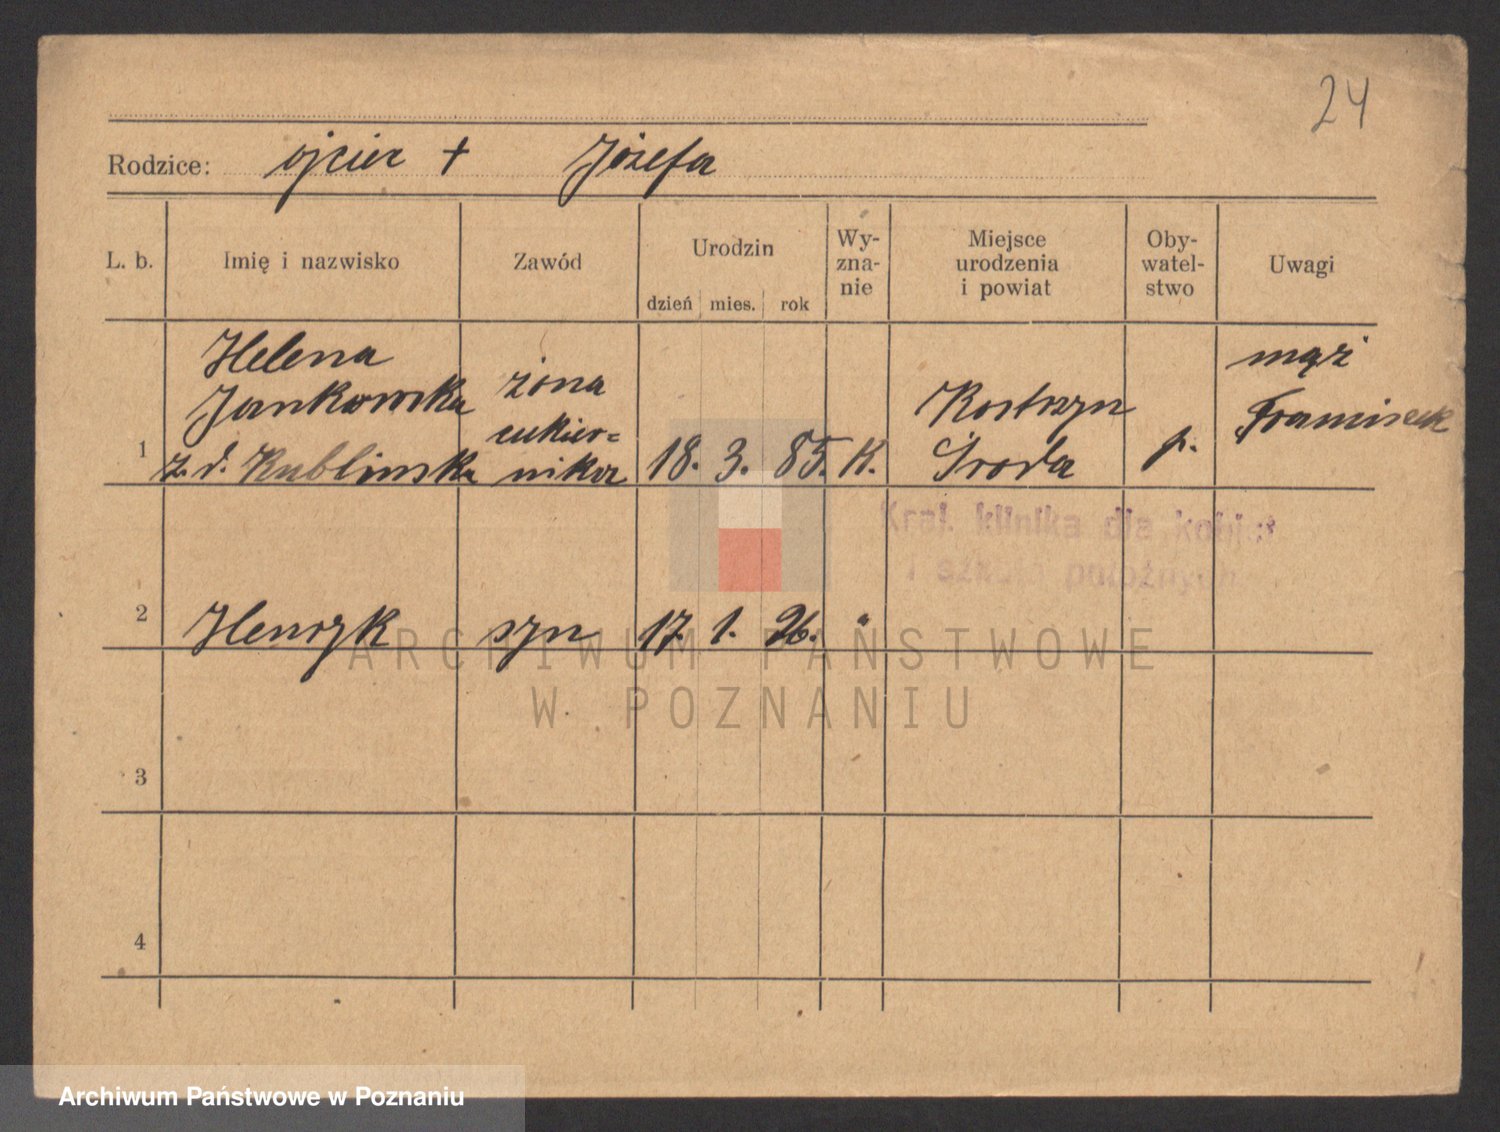 24
Rodzice: ojciec + Józefa
L. b. Imię i nazwisko Zawód Urodzin dzień mies. rok Wy-
zna-
nie Miejsce
urodzenia
i powiat Oby-
watel-
stwo Uwagi
1 Helena
Jankowska
z. d. Kublinska
żona
cukier=
nika
18. 3. 85. K.
Kostrzyn
Środa
p.
mąż
Franciszek
Kraj. klinika dla kobiet
i szkoła położnych
2 Henryk syn 17. 1. 26. "
3
4
ARCHIWUM PAŃSTWOWE
W POZNANIU
Archiwum Państwowe w Poznaniu